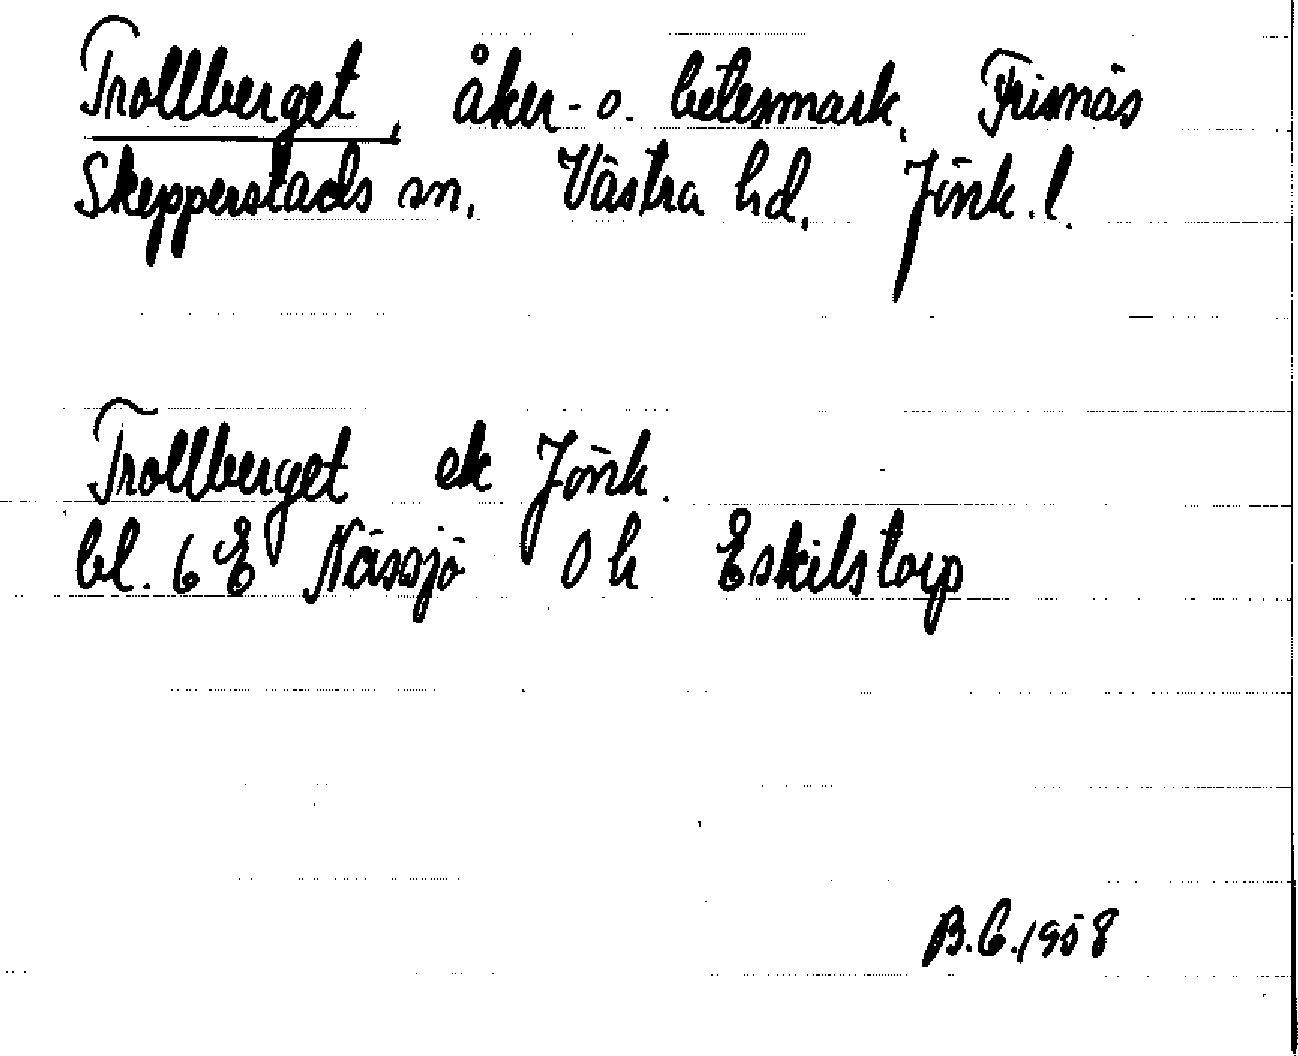 Trollberget, åker- o. betesmark, Frisnäs
Skepperstads sn, Västra hd, Jönk. l.
Trollberget ek Jönk.
bl. 6 E Nässjö 0 h Eskilstorp
B.C. 1958